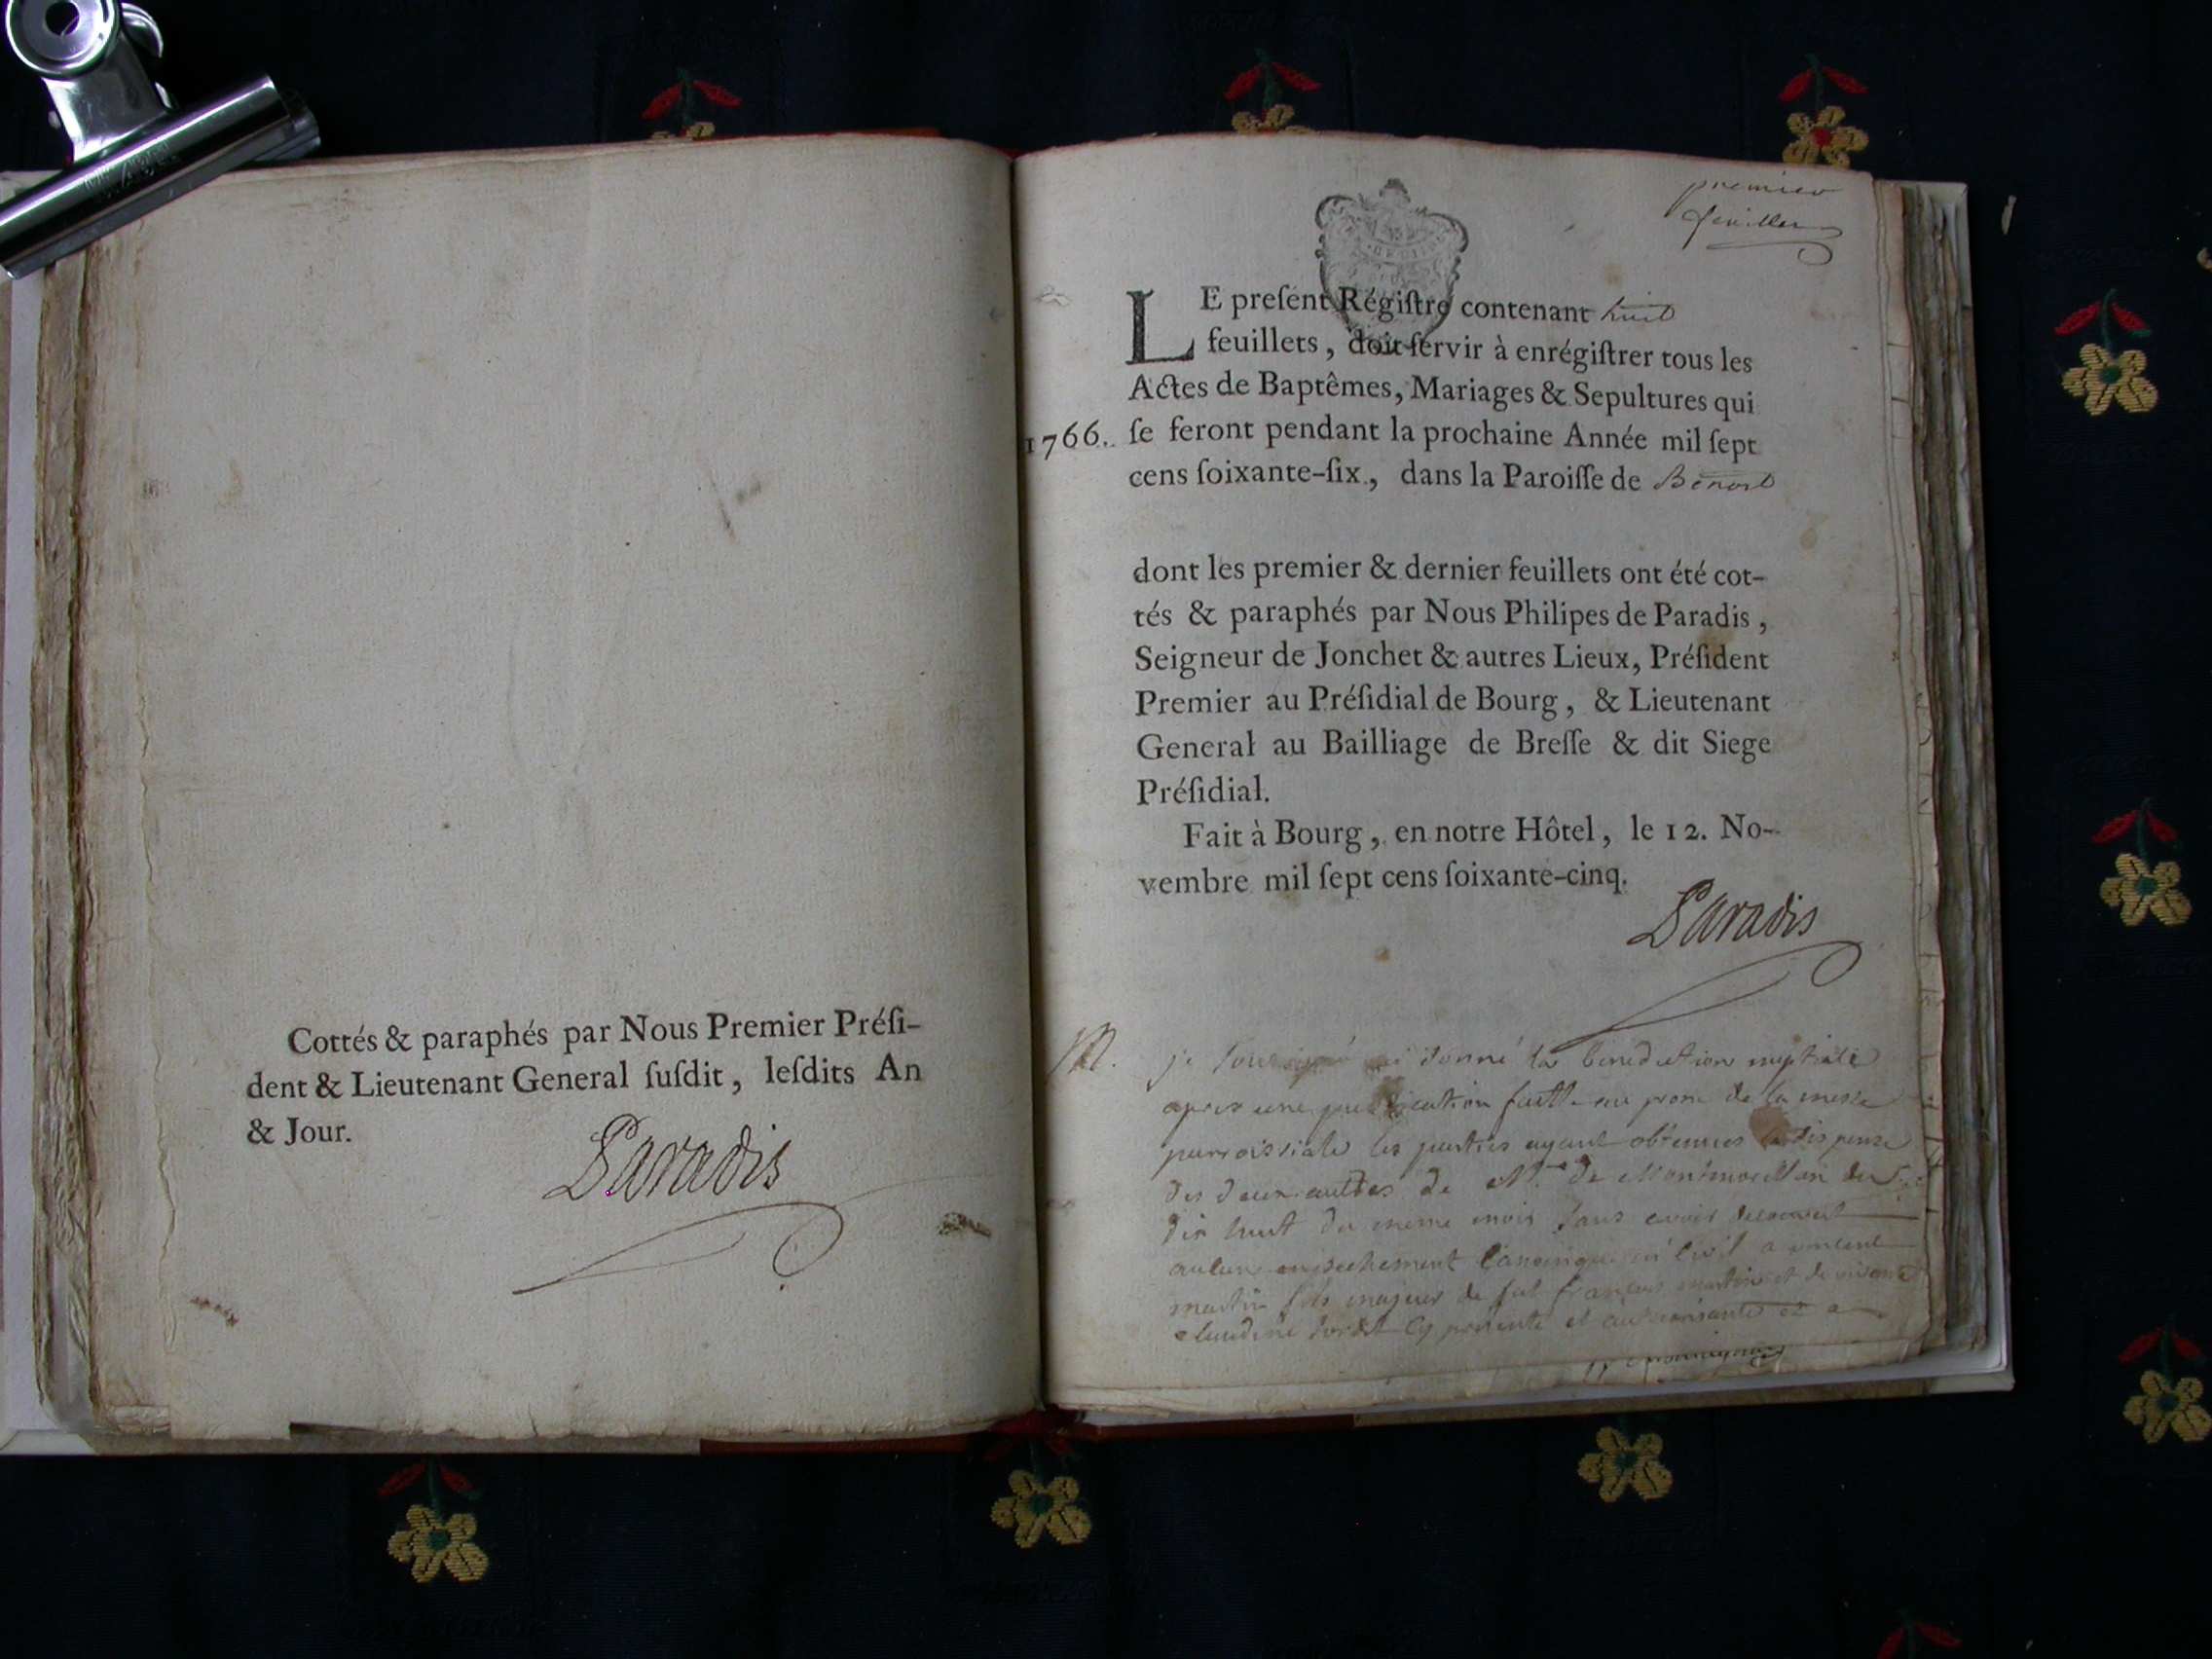 Cottés & paraphés par Nous Premier Préſi-
dent & Lieutenant General ſuſdit, leſdits An
& Jour.
Paradis
premier
feuillet
LE preſent Régiſtre contenant huit
feuillets, doit ſervir à enrégiſtrer tous les
Actes de Baptêmes, Mariages & Sepultures qui
1766. ſe feront pendant la prochaine Année mil ſept
cens ſoixante-ſix, dans la Paroiſſe de Benost
dont les premier & dernier feuillets ont été cot-
tés & paraphés par Nous Philipes de Paradis,
Seigneur de Jonchet & autres Lieux, Préſident
Premier au Préſidial de Bourg, & Lieutenant
General au Bailliage de Breſſe & dit Siege
Préſidial.
Fait à Bourg, en notre Hôtel, le 12. No-
vembre mil ſept cens ſoixante-cinq.
Paradis
M. je soussigné ai donné la benediction nuptiale
apres une publication faitte au prone de la messe
parroissiale les parties ayant obtenues la dispense
des deux autres de Mr de Montmorillon du
dix huit du meme mois sans avoir decouvert
aucun empechement canonique ni civil a
martin fils majeur de feu françois martin et de vivante
claudine cy presente et authorisante et a